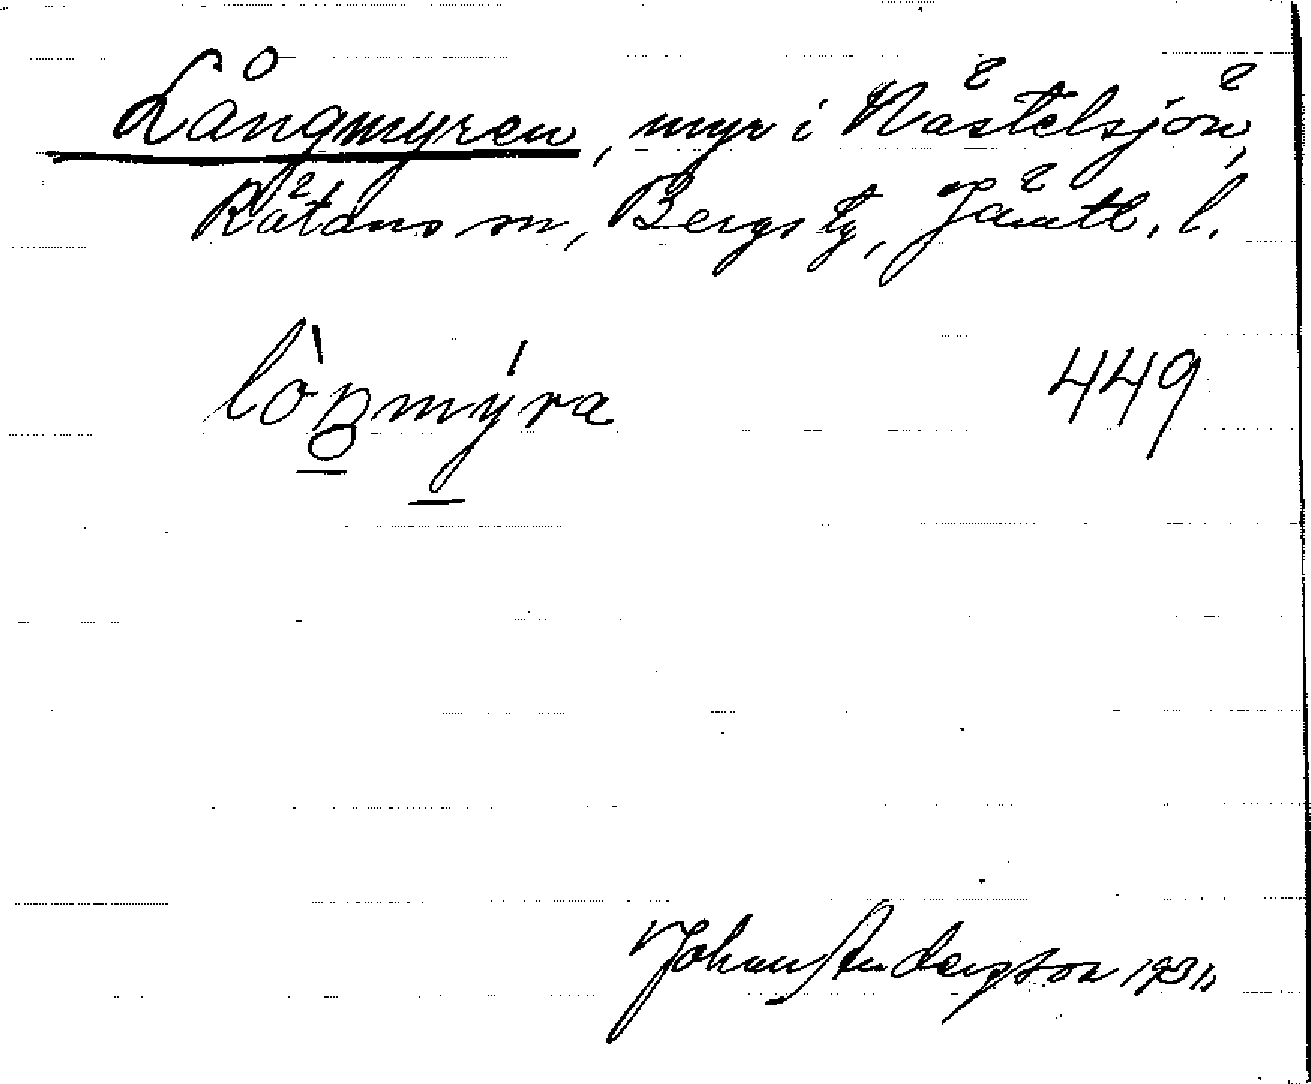 Långmyren, myr i Nästelsjön,
Rätans sn, Bergs tg, Jämtl. l.
lòŋmýra 449
Johan Anderson 1931